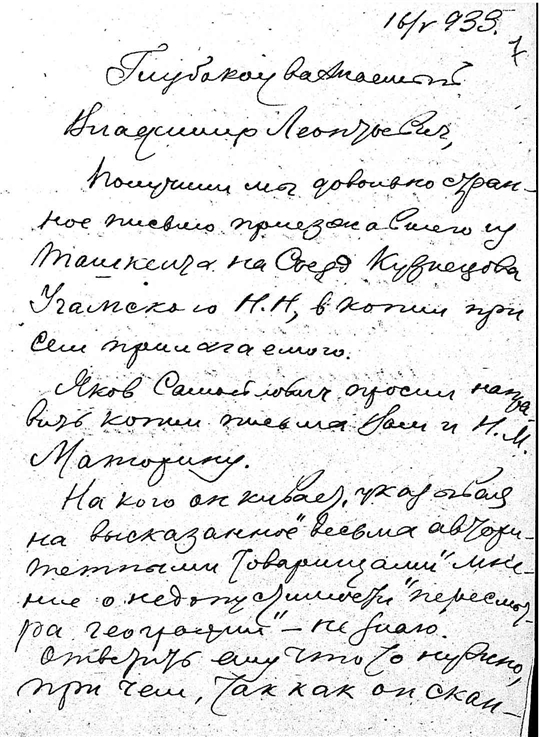 16/V 933.
7
Глубокоуважаемый
Владимир Леонтьевич,
Получили мы довольно стран-
ное письмо приезжавшего из
Ташкента на Съезд Кузнецова
Угамского Н.Н, в копии при
сем прилагаемого.
Яков Самойлович просил напра-
вить копии письма Вам и Н.М.
Маторину.
На кого он кивает, указывая
на высказанное "весьма автори-
тетными товарищами" мне-
ние о недопустимости "пересмот-
ра географии" – не знаю.
Ответить ему что то нужно,
при чем, так как он скан-